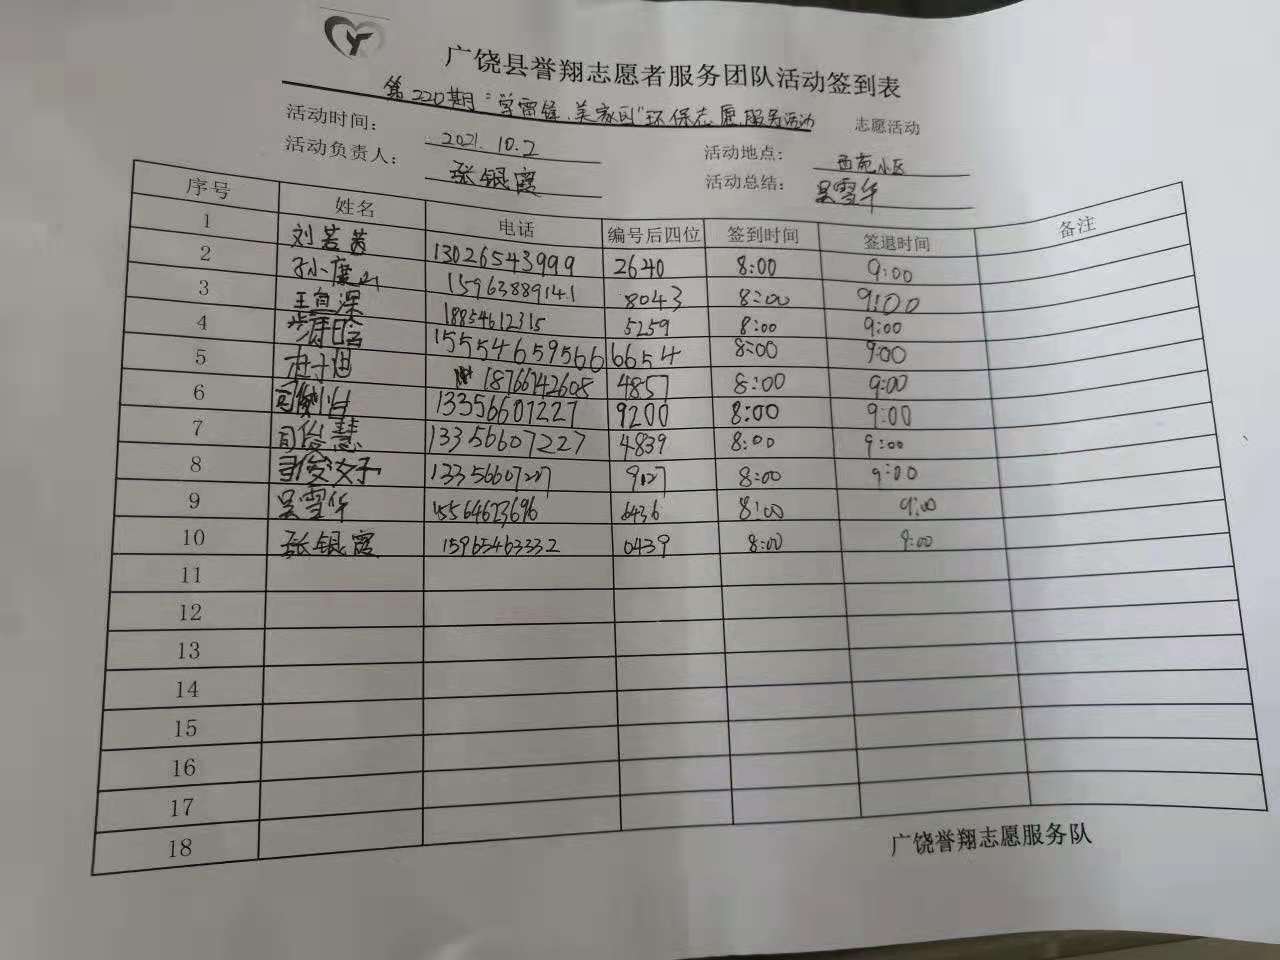 广饶县誉翔志愿者服务团队活动签到表
第220期"学雷锋、美家园"环保志愿服务活动 志愿活动
活动时间: 2021.10.2 活动地点: 西苑小区
活动负责人: 张银霞 活动总结: 吴雪华
序号 姓名 电话 编号后四位 签到时间 签退时间 备注
1 刘若茜 13026543999 2640 8:00 9:00
2 孙小度 15963889141 8043 8:00 9:00
3 18854612315 5259 8:00 9:00
4 15554659566 6654 8:00 9:00
5 杜子迪 18766742608 4857 8:00 9:00
6 13356607227 9200 8:00 9:00
7 司俊慧 13356607227 4839 8:00 9:00
8 司俊好 13356607227 9027 8:00 9:00
9 吴雪华 15564623696 6436 8:00 9:00
10 张银霞 15965463332 0439 8:00 9:00
11
12
13
14
15
16
17
18
广饶誉翔志愿服务队